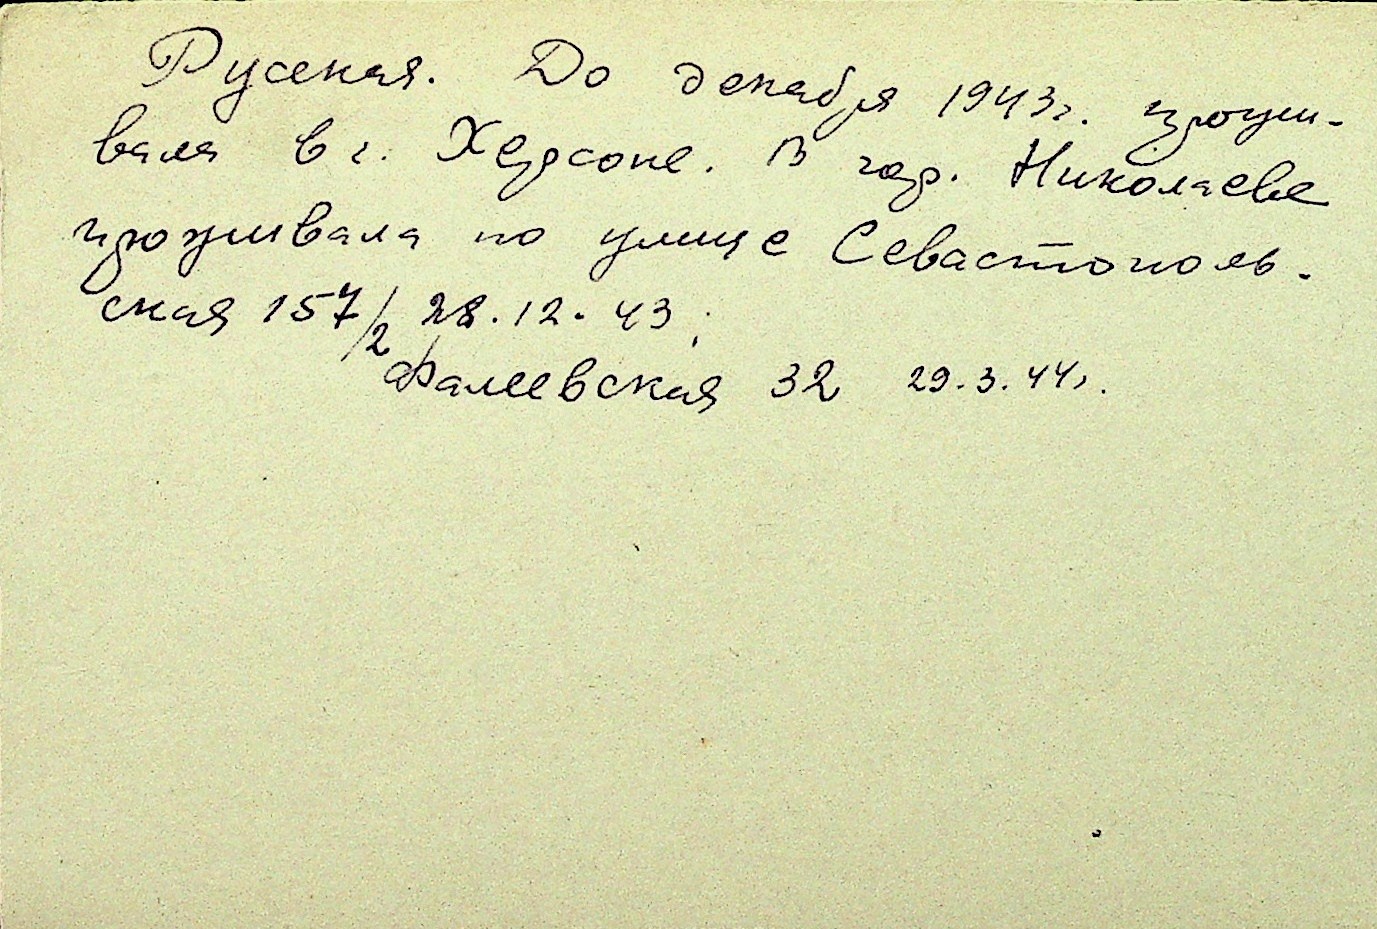 Русская. До декабря 1943г. прожи-
вала в г. Херсоне. В гор. Николаеве
проживала по улице Севастополь-
ская 157/2 28.12.43;
Фалеевская 32 29.3.44г.